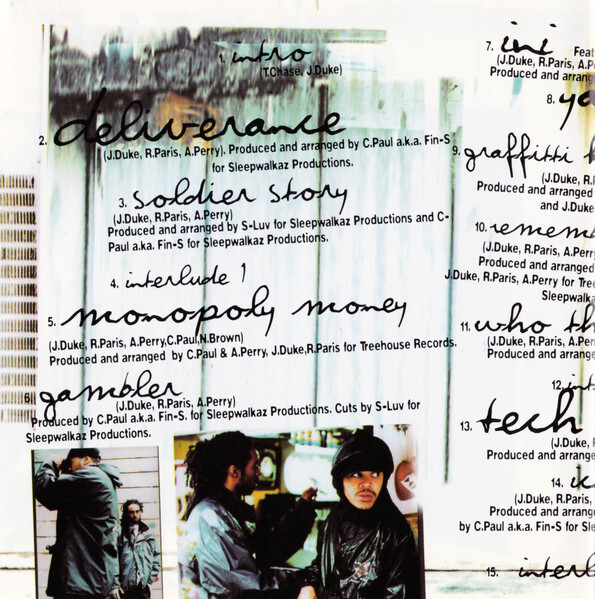 1. intro
(T.Chase, J.Duke)
2. deliverance
(J.Duke, R.Paris, A.Perry). Produced and arranged by C.Paul a.k.a. Fin-S
for Sleepwalkaz Productions.
3. soldier story
(J.Duke, R.Paris, A.Perry)
Produced and arranged by S-Luv for Sleepwalkaz Productions and C-
Paul a.k.a. Fin-S for Sleepwalkaz Productions.
4. interlude 1
5. monopoly money
(J.Duke, R.Paris, A.Perry,C.Paul,N.Brown)
Produced and arranged by C.Paul & A.Perry, J.Duke,R.Paris for Treehouse Records.
6. gambler
(J.Duke, R.Paris, A.Perry)
Produced by C.Paul a.k.a. Fin-S. for Sleepwalkaz Productions. Cuts by S-Luv for
Sleepwalkaz Productions.
7. ini Feat
(J.Duke, R.Paris, A.P
Produced and arrang
8. yo
9. graffitti
(J.Duke, R.
Produced and arranged
and J.Duke
10. remem
(J.Duke, R.Paris, A.Perry
Produced and arranged
J.Duke, R.Paris, A.Perry for Tre
Sleepwalka
11. who th
(J.Duke, R.Paris, A.Perry
Produced and arrange
12. int
13. tech
(J.Duke,
Produced and arrange
14.
(J.Duke, R.Paris,
Produced and arrange
by C.Paul a.k.a. Fin-S for Sle
15. interl